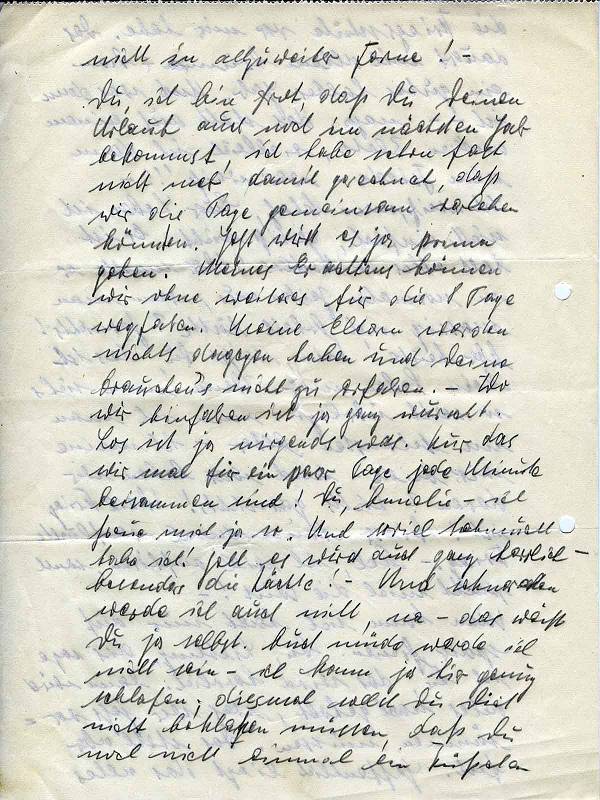 nicht in allzuweiter Ferne! -
Du, ich bin froh, daß Du Deinen
Urlaub auch noch im nächsten Jahr
bekommst, ich habe schon fast
nicht mehr damit gerechnet, daß
wir die Tage gemeinsam verleben
können. Jetzt wird es ja prima
gehen. Meines Erachtens können
wir ohne weiteres für die 8 Tage
wegfahren. Meine Eltern werden
nichts dagegen haben und Deine
brauchen's nicht zu erfahren. - Wo
wir hinfahren ist ja ganz wurscht.
Los ist ja nirgends was. Nur das
wir mal für ein paar Tage jede Minute
beisammen sind! Du, - ich
freue mich ja so. Und soviel Sehnsucht
habe ich! es wird auch ganz herrlich -
besonders die Nächte! - Und schnarchen
werde ich auch nicht, na - das weißt
Du ja selbst. Auch müde werde ich
nicht sein - ich kann ja hier genug
schlafen, diesmal sollst Du Dich
nicht beklagen müssen, daß Du
noch nicht einmal ein